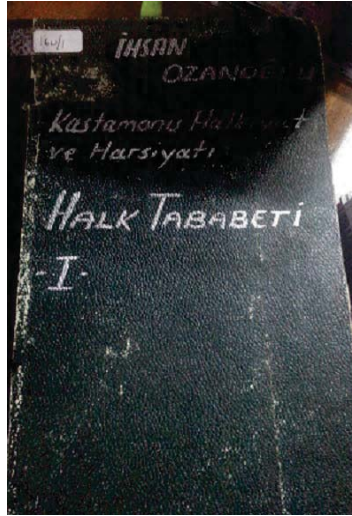 İHSAN
OZANOĞLU
Kastamonu
ve Harsiyatı
HALK TABABETİ
-I-